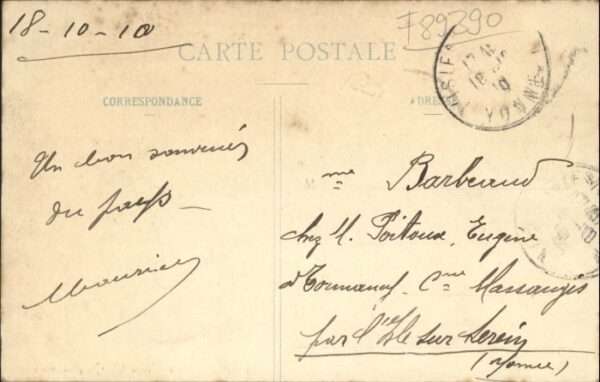 18-10-10
F89290
CARTE POSTALE
CORRESPONDANCE
ADRE
YONNE
Un bon souvenir
du pays
Maurice
Mme Barbeaud
chez M. Poitoux, Eugène
Cne Massangis
par l'Isle sur Serein
(Yonne)